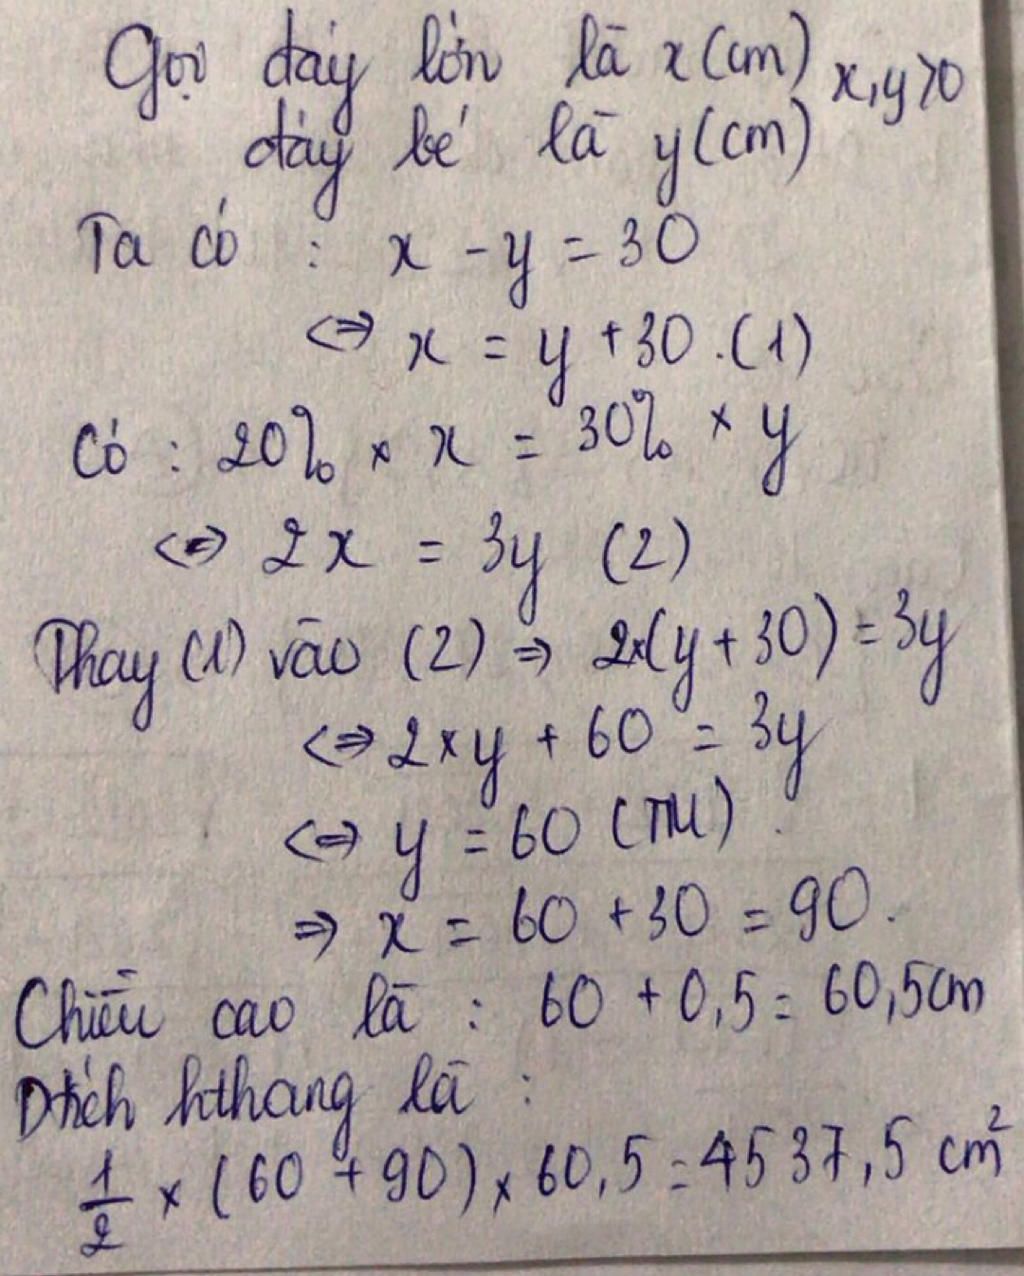 Gọi đáy lớn là x(cm) x,y>0
đáy bé là y(cm)
Ta có : x - y = 30
<=> x = y + 30 .(1)
Có : 20% × x = 30% × y
<=> 2x = 3y (2)
Thay (1) vào (2) => 2×(y + 30) = 3y
<=> 2×y + 60 = 3y
<=> y = 60 (TM) .
=> x = 60 + 30 = 90 .
Chiều cao là : 60 + 0,5 = 60,5cm
Dtích hthang là :
1/2 × (60 + 90) × 60,5 = 4537,5 cm²